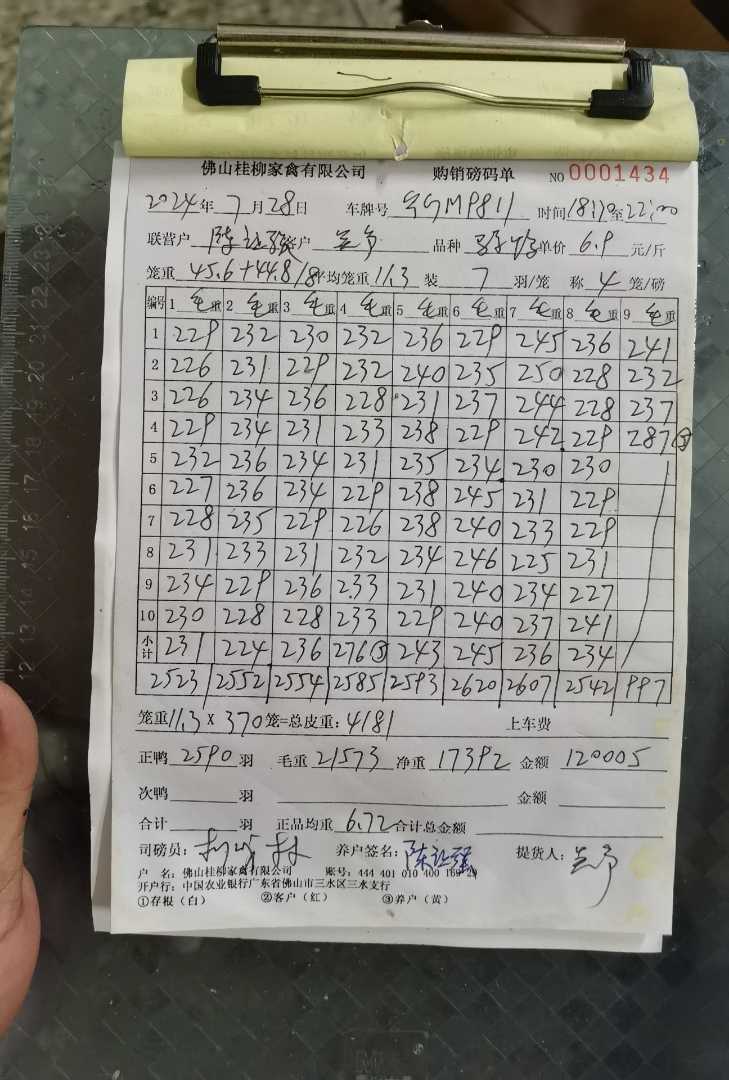 佛山桂柳家禽有限公司 购销磅码单 NO 0001434
2024年 7月28日 车牌号 MP811 时间 18:20至22:00
联营户 户 兰芳 品种 单价 6.9 元/斤
笼重 45.6+44.8/8 平均笼重 11.3 装 7 羽/笼 称 4 笼/磅
编号 1 毛重 2 毛重 3 毛重 4 毛重 5 毛重 6 毛重 7 毛重 8 毛重 9 毛重
1 229 232 230 232 236 229 245 236 241
2 226 231 229 232 240 235 250 228 232
3 226 234 236 228 231 237 244 228 237
4 229 234 231 233 238 229 242 229 287⑤
5 232 236 234 231 235 234 230 230
6 227 236 234 229 238 245 231 229
7 228 235 229 226 238 240 233 229
8 231 233 231 232 234 246 225 231
9 234 229 236 233 231 240 234 227
10 230 228 228 233 229 240 237 241
小计 231 224 236 276⑤ 243 245 236 234
2523 2552 2554 2585 2593 2620 2607 2542 997
笼重 11.3 X 370 笼=总皮重: 4181 上车费
正鸭 2590 羽 毛重 21573 净重 17392 金额 120005
次鸭 羽 金额
合计 羽 正品均重 6.72 合计总金额
司磅员: 养户签名: 陈 强 提货人: 兰芳
户 名: 佛山桂柳家禽有限公司 账号: 444 401 010 400 169 29
开户行: 中国农业银行广东省佛山市三水区三水支行
①存根(白) ②客户(红) ③养户(黄)